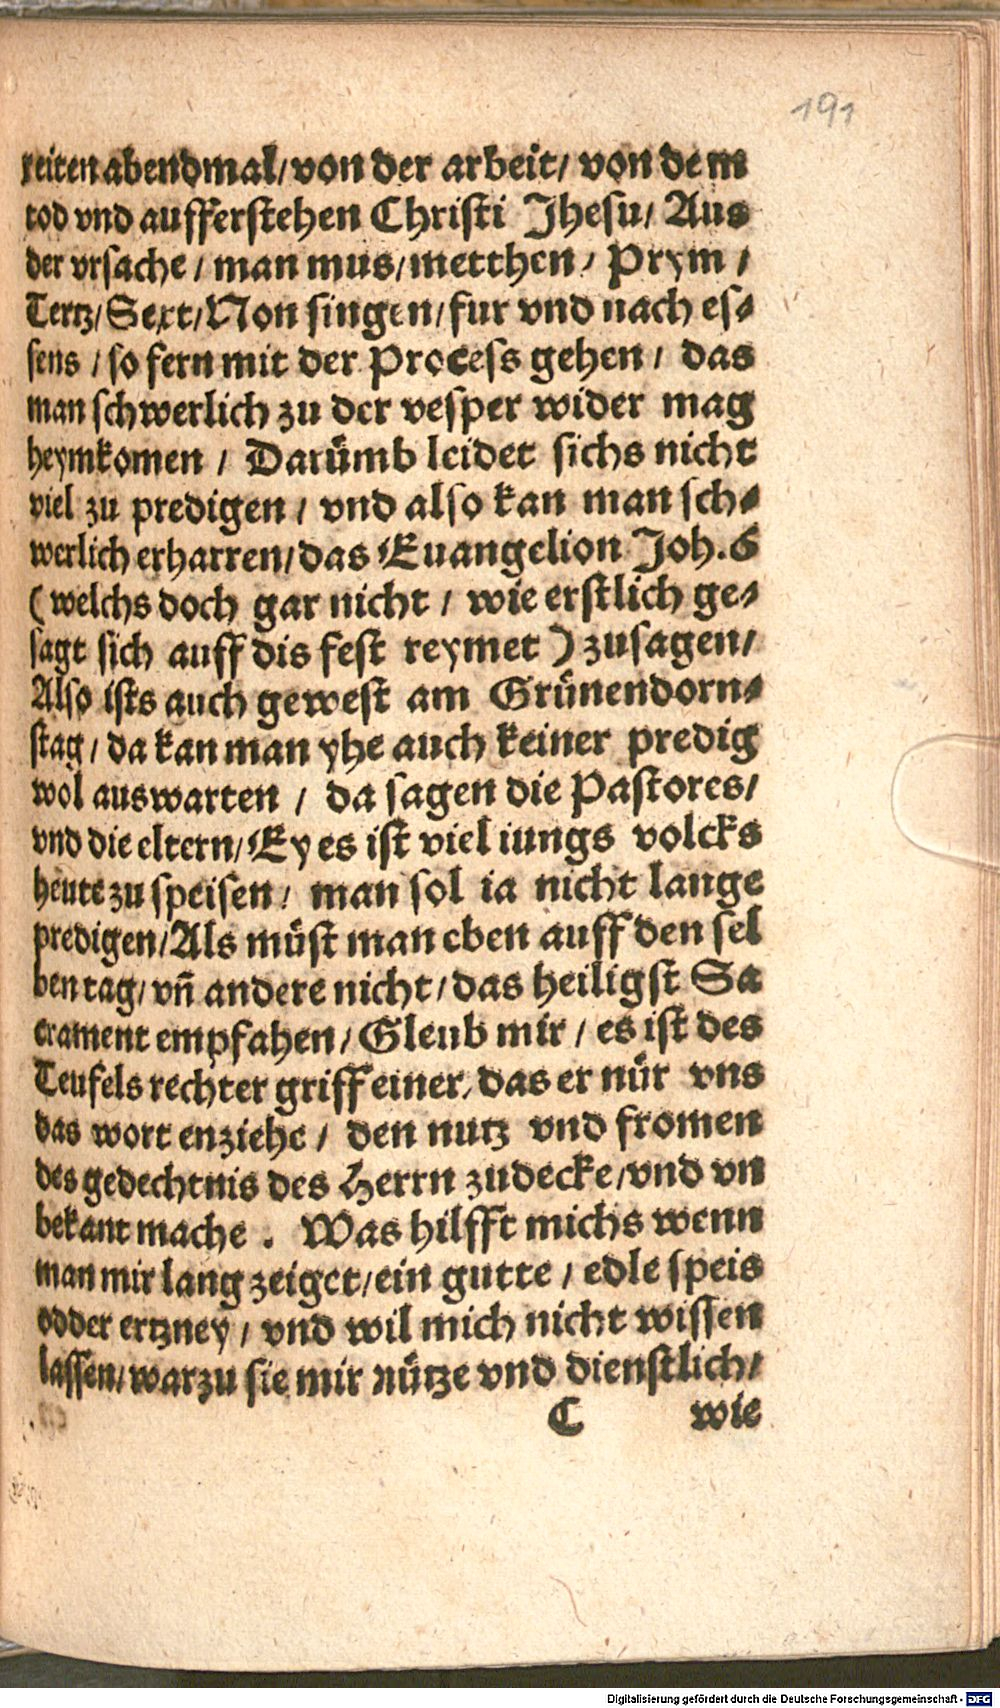 191
reiten abendmal/ von der arbeit/ von dem
tod vnd aufferstehen Christi Jhesu/ Aus
der vrsache/ man mus/ metthen/ Prym/
Tertz/ Sext/ Non singen/ fur vnd nach es⸗
sens/ so fern mit der Process gehen/ das
man schwerlich zu der vesper wider mag
heymkomen/ Darümb leidet sichs nicht
viel zu predigen/ vnd also kan man sch⸗
werlich erharren/ das Euangelion Joh. 6
(welchs doch gar nicht/ wie erstlich ge⸗
sagt sich auff dis fest reymet) zusagen/
Also ists auch gewest am Grünendorn⸗
stag/ da kan man yhe auch keiner predig
wol auswarten/ da sagen die Pastores/
vnd die eltern/ Ey es ist viel iungs volcks
heute zu speisen/ man sol ia nicht lange
predigen/ Als müst man eben auff den sel
ben tag/ vñ andere nicht/ das heiligst Sa
crament empfahen/ Gleub mir/ es ist des
Teufels rechter griff einer/ das er nür vns
das wort enziehe/ den nutz vnd fromen
des gedechtnis des Herrn zudecke/ vnd vn
bekant mache. Was hilfft michs wenn
man mir lang zeiget/ ein gutte/ edle speis
odder ertzney/ vnd wil mich nicht wissen
lassen/ warzu sie mir nütze vnd dienstlich/
C wie
Digitalisierung gefördert durch die Deutsche Forschungsgemeinschaft - DFG